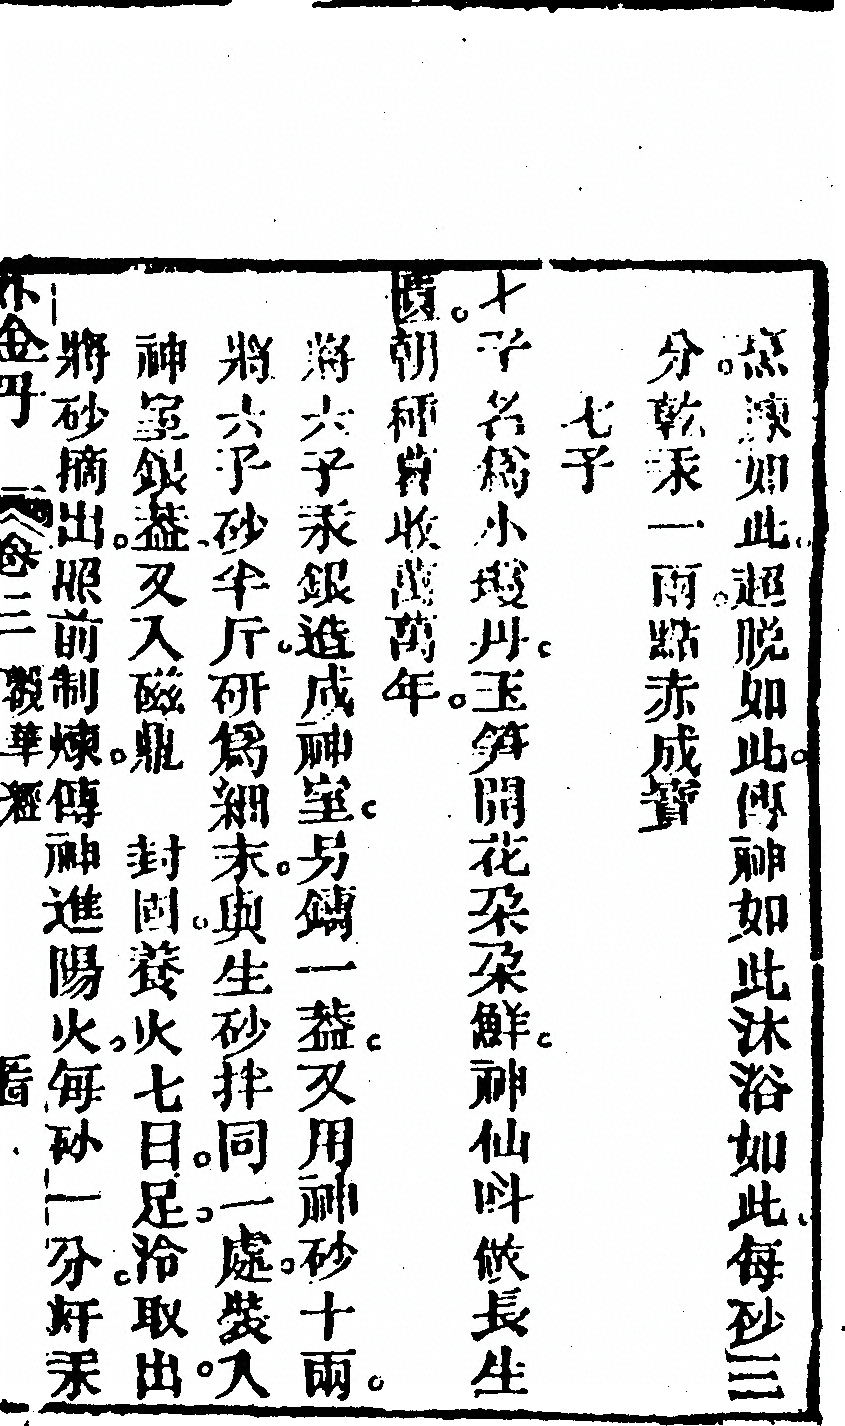 烹煉如此超脱如此傳神如此沐浴如此每砂三
分乾汞一兩點赤成寳
七子
七子名爲小還丹玉笋開花朶朶鮮神仙呌做長生
寳朝種暮收萬萬年
將六子汞銀造成神室另鑄一葢又用神砂十兩
將六子砂半斤研爲細末與生砂拌同一處裝入
神室銀葢又入磁鼎 封固養火七日足冷取出
將砂摘出照前制煉傳神進陽火每砂一分奸汞
外金丹 卷三